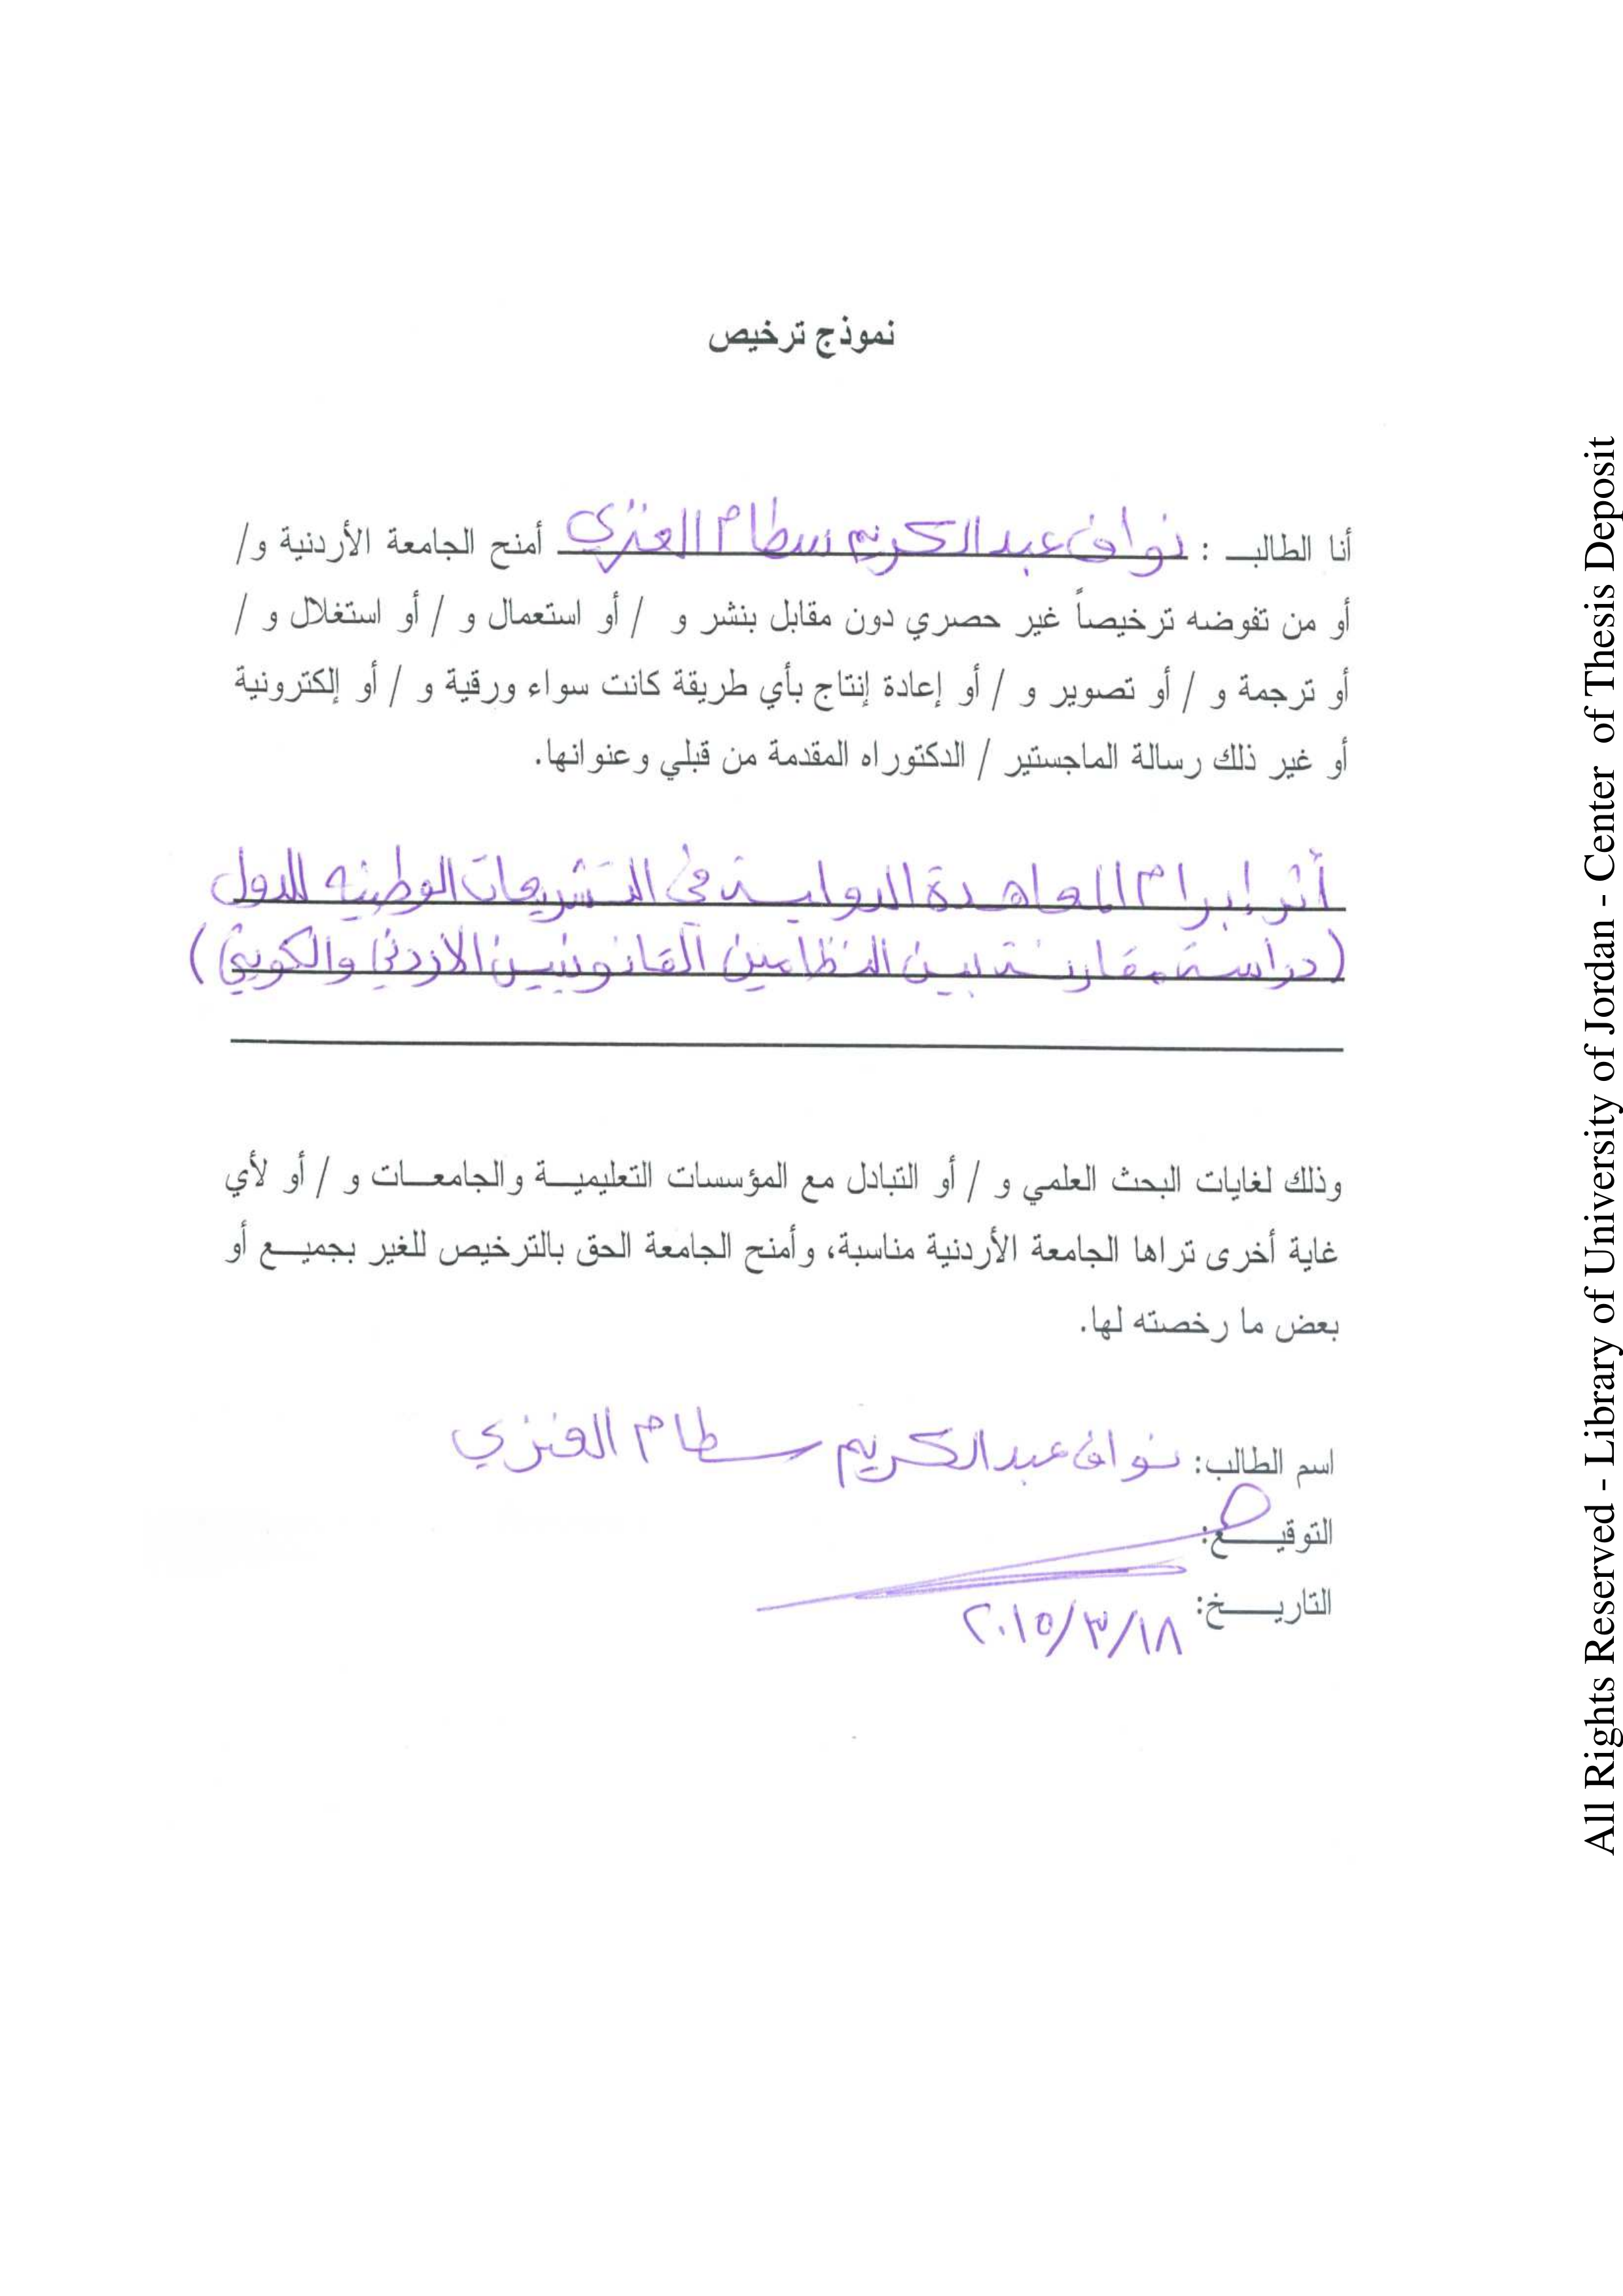 نموذج ترخيص
أنا الطالب : نواف عبدالكريم سطام العنزي أمنح الجامعة الأردنية و/
أو من تفوضه ترخيصاً غير حصري دون مقابل بنشر و / أو استعمال و / أو استغلال و /
أو ترجمة و / أو تصوير و / أو إعادة إنتاج بأي طريقة كانت سواء ورقية و / أو إلكترونية
أو غير ذلك رسالة الماجستير / الدكتوراه المقدمة من قبلي وعنوانها.
أثر إبرام المعاهدة الدولية في التشريعات الوطنيه للدول
(دراسة مقارنة بين النظامين القانونيين الأردني والكويتي)
وذلك لغايات البحث العلمي و / أو التبادل مع المؤسسات التعليمية والجامعات و / أو لأي
غاية أخرى تراها الجامعة الأردنية مناسبة، وأمنح الجامعة الحق بالترخيص للغير بجميع أو
بعض ما رخصته لها.
اسم الطالب: نواف عبدالكريم سطام العنزي
التوقيع:
التاريخ: ٢٠١٥/٣/١٨
All Rights Reserved - Library of University of Jordan - Center of Thesis Deposit